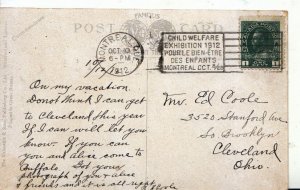 FAMOUS
POST CARD
MONTREAL, QUE
OCT 10
6-PM
1912
CHILD WELFARE
EXHIBITION 1912
POUR LE BIEN-ÊTRE
DES ENFANTS
MONTREAL OCT.
10/12
On my vacation.
Do not think I can get
to Cleveland this year
If I can will let you
know. If you can
you and alice come to
Buffalo. Got your
photograph of you & alice
& friends and it is all right
Mr. Ed Coole
3320 Stanford Ave
So Brooklyn
Cleveland
Ohio.